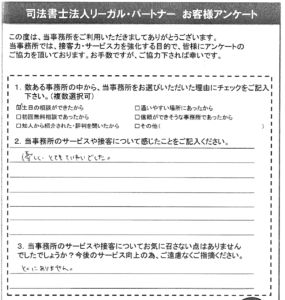 司法書士法人リーガル・パートナー お客様アンケート
この度は、当事務所をご利用いただきましてありがとうございます。
当事務所では、接客力・サービス力を強化する目的で、皆様にアンケートの
ご協力を頂いております。お手数ですが、ご協力下されば幸いです。
1. 数ある事務所の中から、当事務所をお選びいただいた理由にチェックをご記入
下さい。(複数選択可)
☑土日の相談ができたから □通いやすい場所にあったから
□初回無料相談であったから □信頼ができそうな事務所であったから
□知人から紹介された・評判を聞いたから □その他(
2. 当事務所のサービスや接客について感じたことをご記入ください。
優しい とても でした。
3. 当事務所のサービスや接客についてお気に召さない点はありません
でしたでしょうか?今後のサービス向上の為、ご遠慮なくご指摘ください。
とくにありません。